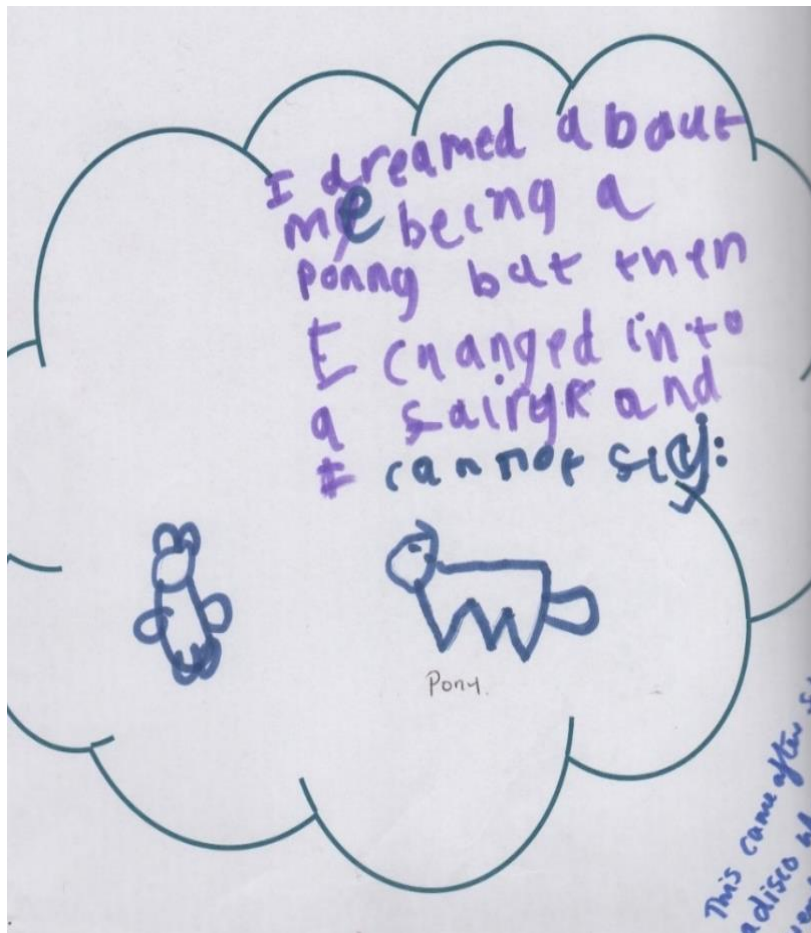 I dreamed about
me being a
ponny but then
I changed into
a sairyk and
I cannot
Pony.
This came after
adisco